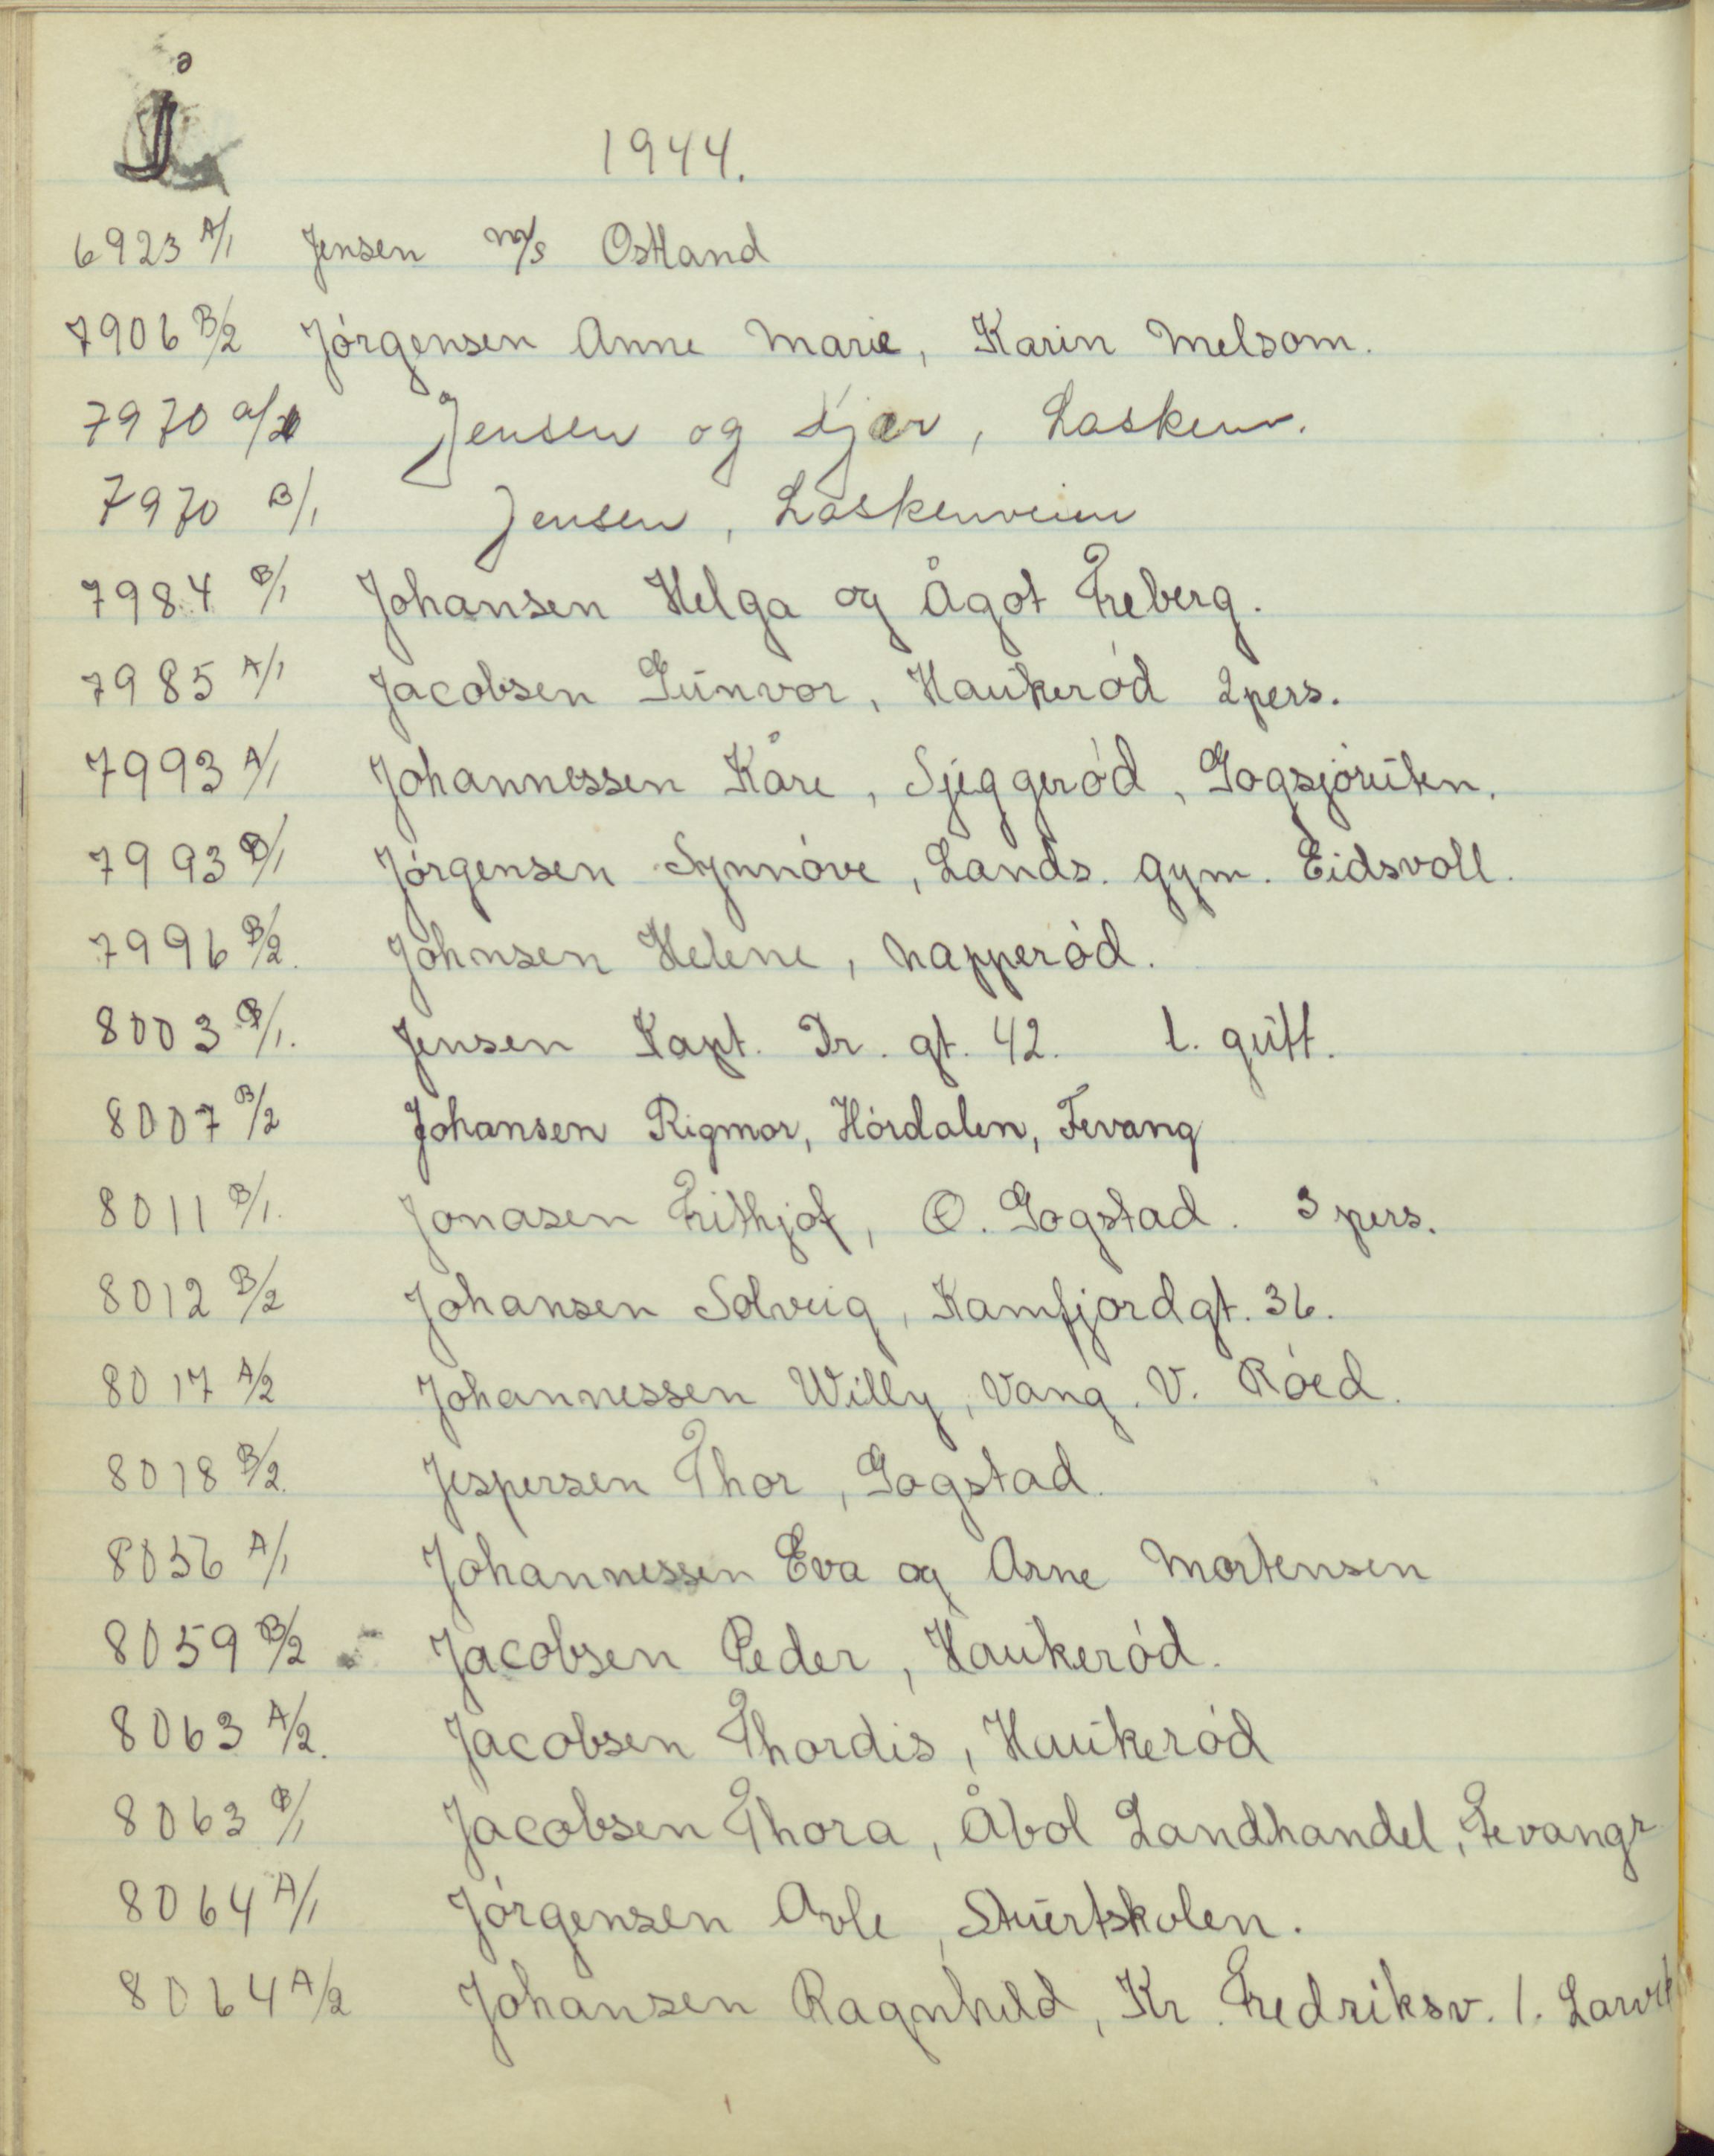 J
1944.
6923 A/1 Jensen M/S Ostland
7906 B/2 Jórgensen Anne Marie, Karin Melsom.
7970 a/2 Jensen og Kjær, Laskenv.
7970 B/1 Jensen, Laskenveien
7984 B/1 Johansen Helga og Ågot Freberg.
7985 A/1 Jacobsen Gunvor, Haukeród 2 pers.
7993 A/1 Johannessen Kåre, Sjeggeród, Gogsjóruten.
7993 B/1 Jórgensen Synnóve, Lands. gym. Eidsvoll.
7996 B/2. Johnsen Helene, Napperód.
8003 B/1. Jensen Kapt. Dr. gt. 42. 1. gutt.
8007 B/2 Johansen Rigmor, Hórdalen, Fevang
8011 B/1. Jonasen Frithjof, Ø. Gogstad. 3 pers.
8012 B/2 Johansen Solveig, Kamfjordgt. 36.
8017 A/2 Johannessen Willy, Vang. V. Róed.
8018 B/2. Jespersen Thor, Gogstad.
8056 A/1 Johannessen Eva og Arne Mortensen
8059 B/2 Jacobsen Peder, Haukeród.
8063 A/2. Jacobsen Thordis, Haukeród
8063 B/1 Jacobsen Thora, Åbol Landhandel, Fevangr
8064 A/1 Jórgensen Arle, Stuertskolen.
8064 A/2 Johansen Ragnhild, Kr. Fredriksv. 1. Larvik